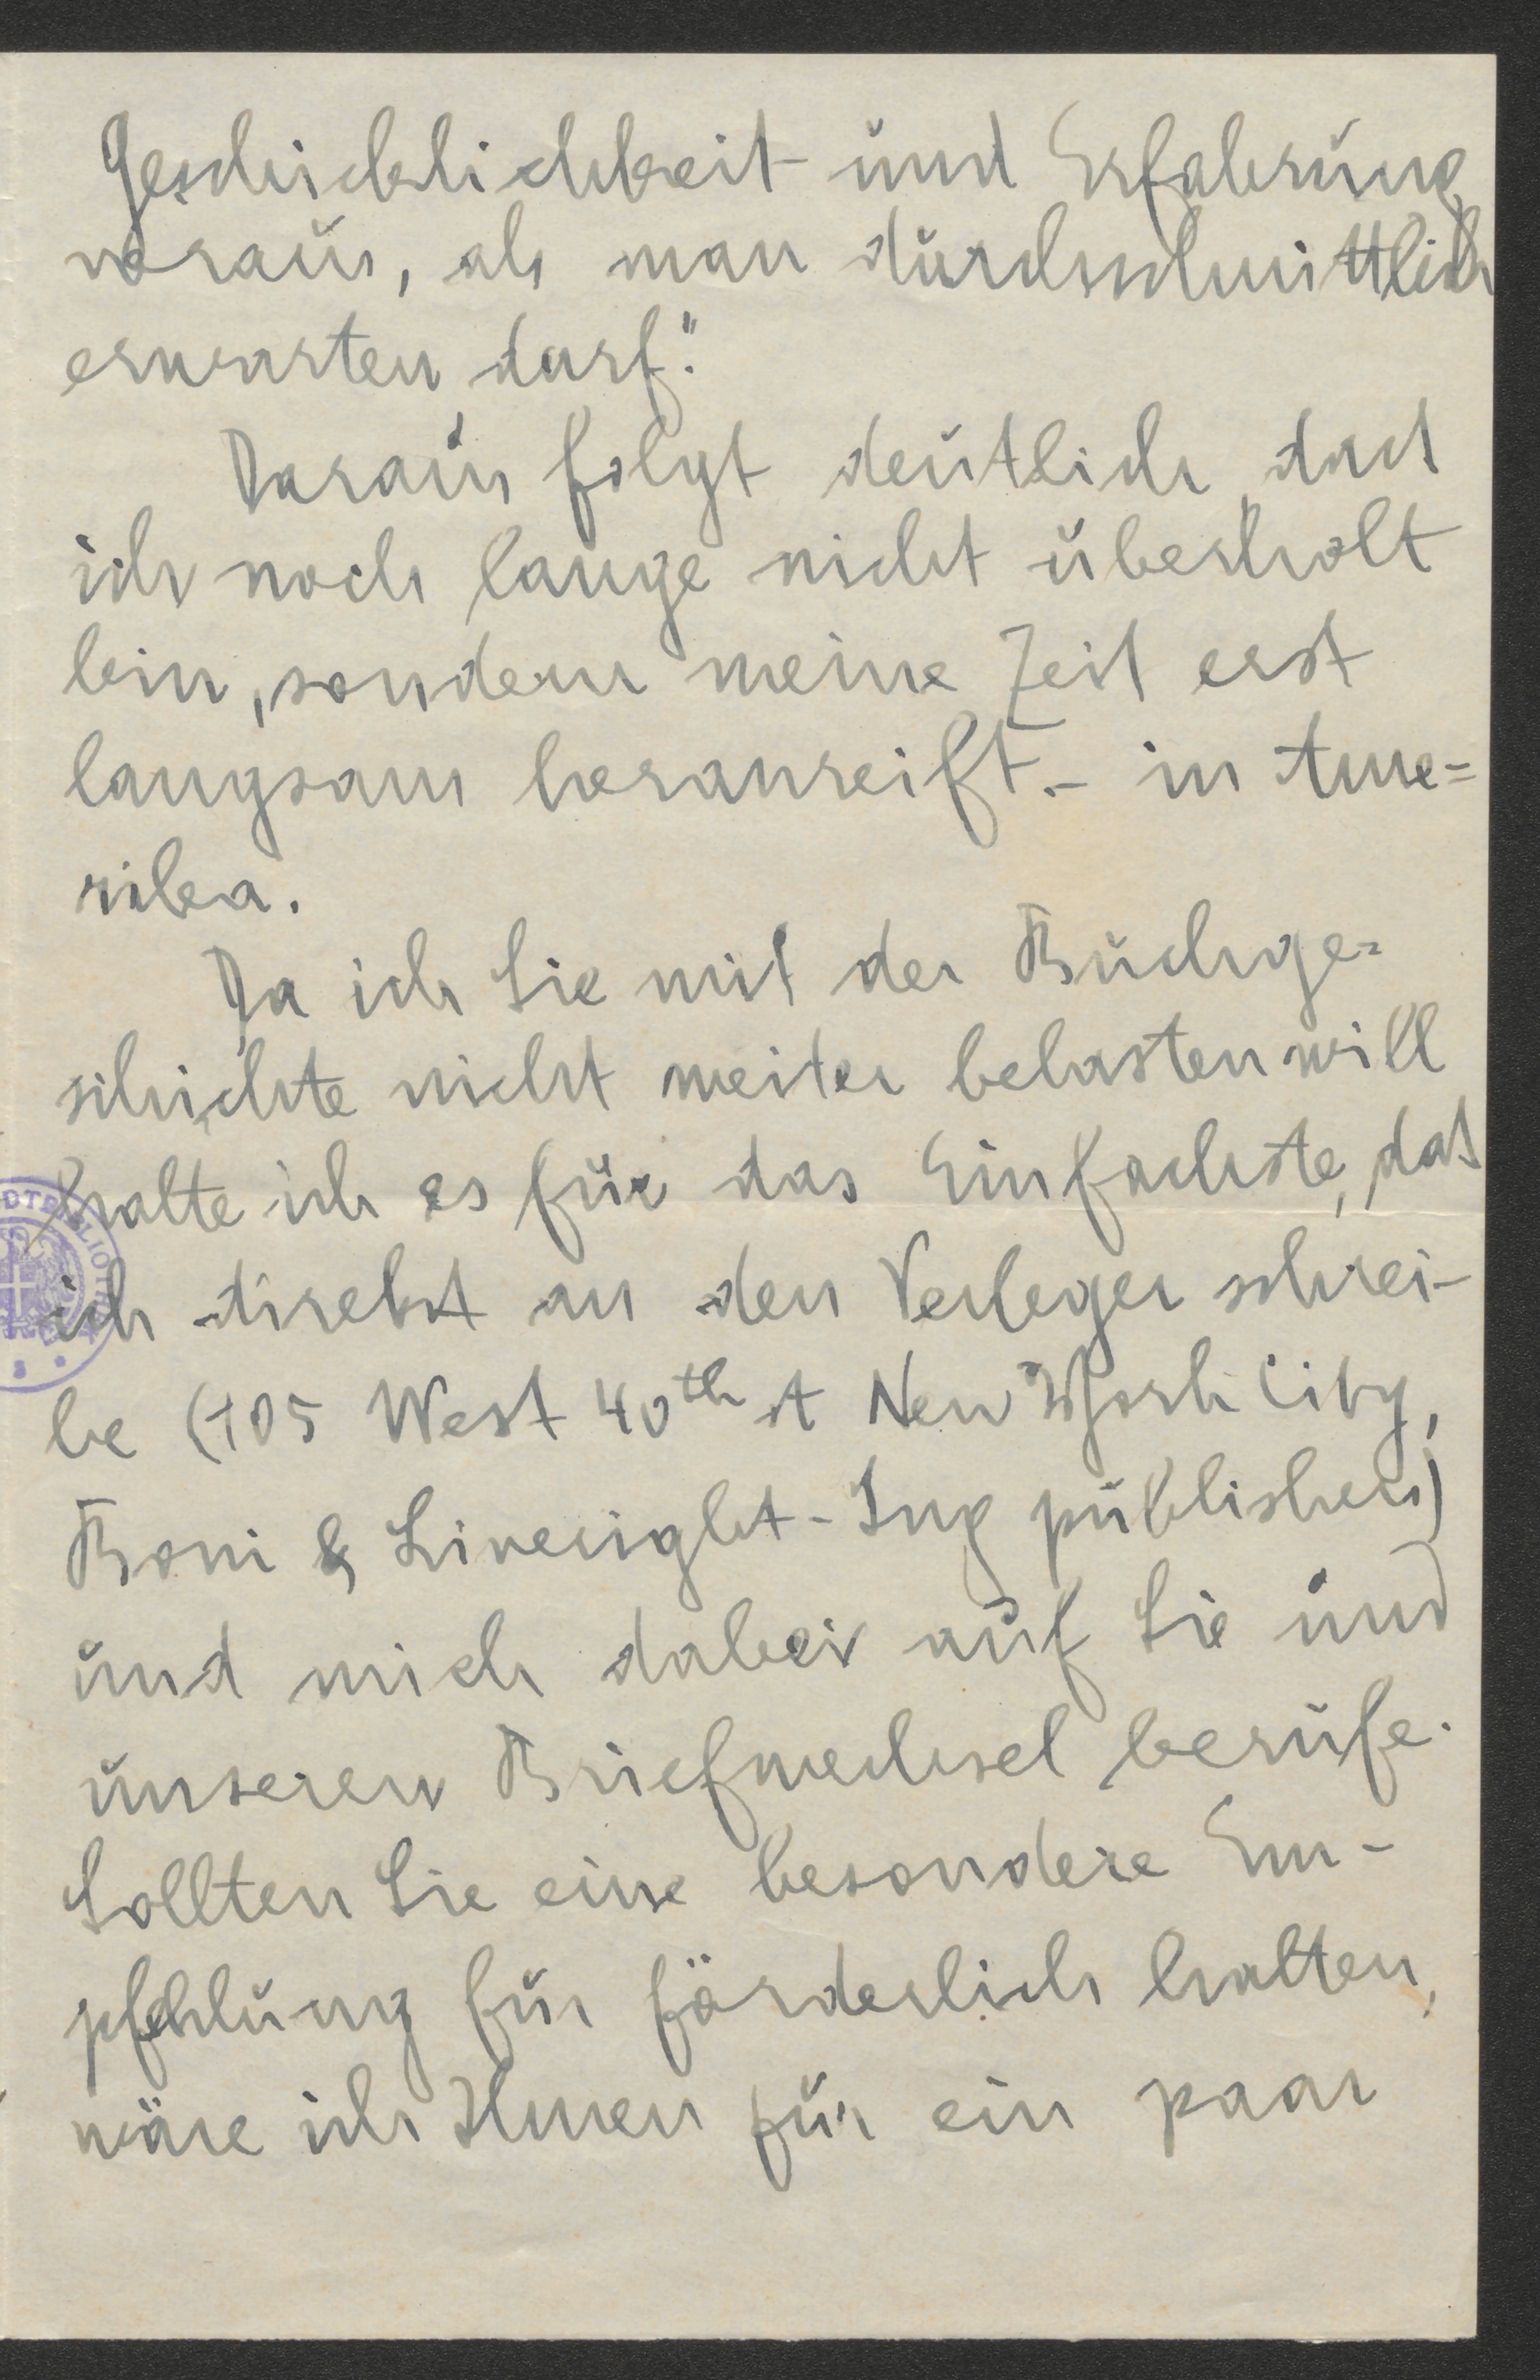 Geschicklichkeit und Erfahrung
voraus, als man durchschnittlich
erwarten darf."
Daraus folgt deutlich, dass
ich noch lange nicht überholt
bin, sondern meine Zeit erst
langsam heranreift. – in Ame=
rika.
Da ich Sie mit der Buchge=
schichte nicht weiter belasten will
halte ich es für das Einfachste, daß
ich direkt an den Verleger schrei-
be (105 West 40th st New York City,
Boni & Liveright - Inc publishers)
und mich dabei auf Sie und
unseren Briefwechsel berufe.
Sollten Sie eine besondere Em-
pfehlung für förderlich halten,
wäre ich Ihnen für ein paar